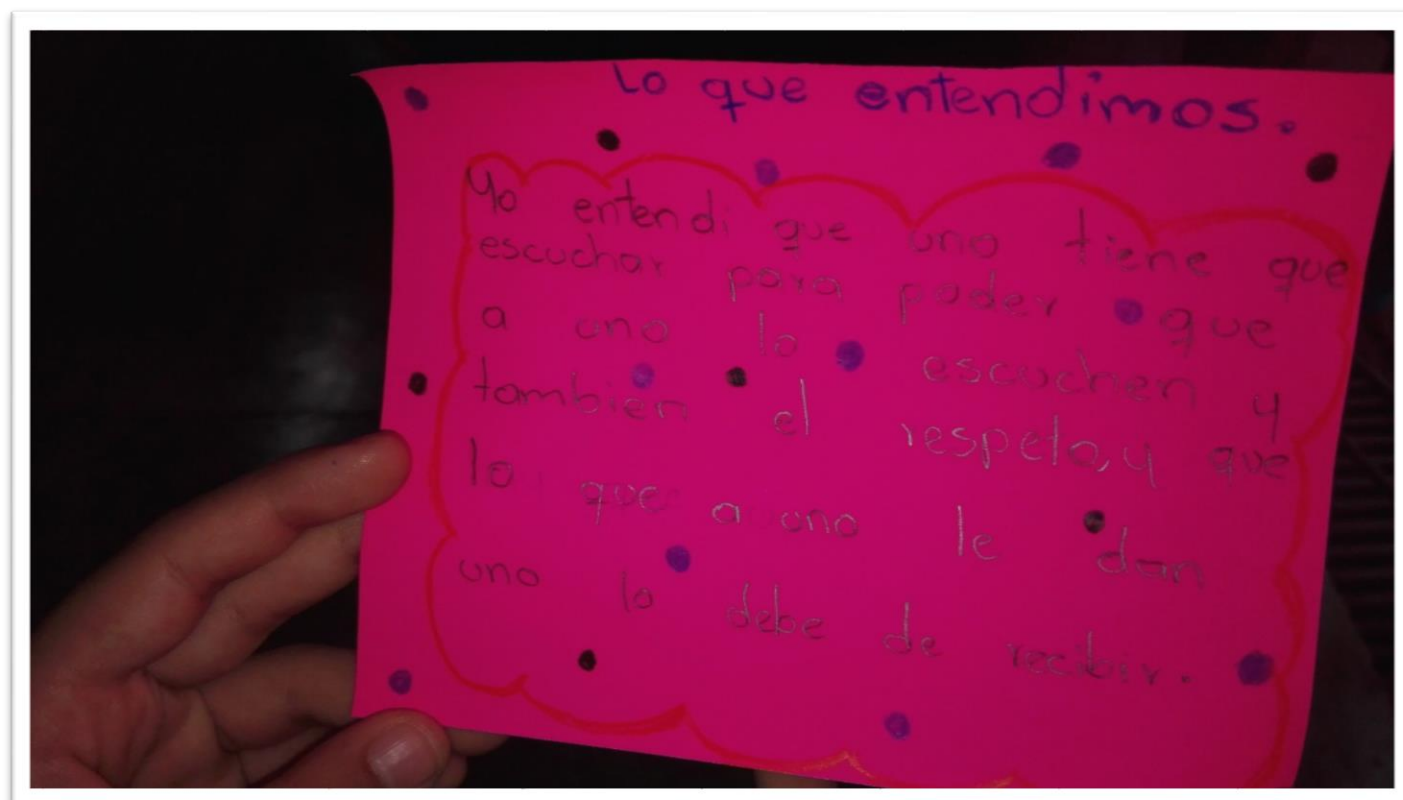 Lo que entendimos.
Yo entendi que uno tiene que
escuchar para poder que
a uno lo escuchen y
tambien el respeto, y que
lo que a uno le dan
uno lo debe de recibir.